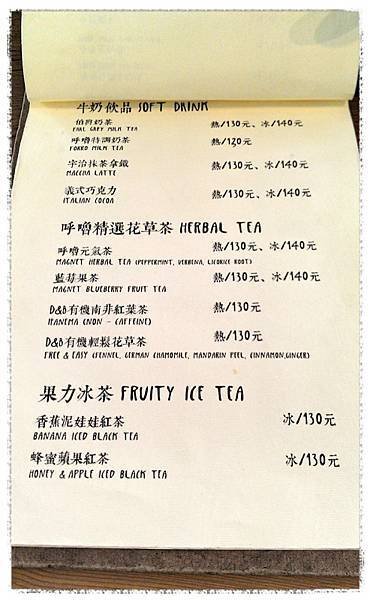 牛奶飲品 SOFT DRINK
伯爵奶茶 熱/130元、冰/140元
EARL GREY MILK TEA
呼嚕特調奶茶 熱/120元
FORRO MILK TEA
宇治抹茶拿鐵 熱/130元、冰/140元
MACCHA LATTE
義式巧克力 熱/130元、冰/140元
ITALIAN COCOA
呼嚕精選花草茶 HERBAL TEA
呼嚕元氣茶 熱/130元、冰/140元
MAGNET HERBAL TEA (PEPPERMINT, VERBENA, LICORICE ROOT)
藍莓果茶 熱/130元、冰/140元
MAGNET BLUEBERRY FRUIT TEA
D&B有機南非紅葉茶 熱/130元
IPANEMA (NON - CAFFEINE)
D&B有機輕鬆花草茶 熱/130元
FREE & EASY (FENNEL, GERMAN CHAMOMILE, MANDARIN PEEL, CINNAMON,GINGER)
果力冰茶 FRUITY ICE TEA
香蕉泥娃娃紅茶 冰/130元
BANANA ICED BLACK TEA
蜂蜜蘋果紅茶 冰/130元
HONEY & APPLE ICED BLACK TEA